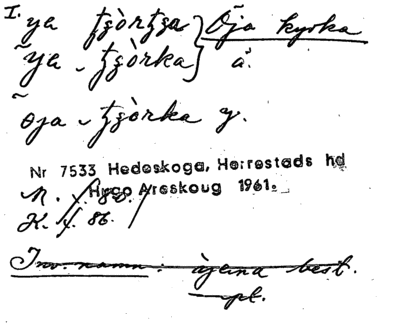 I. ya tşòrtşa } Öja kyrka
ỹa - tşòrka } å.
õja - tşòrka y.
Nr 7533 Hedeskoga, Herrestads hd
Hugo Areskoug 1961.
M.
K. 86.
Inv. namn: best.
pl.